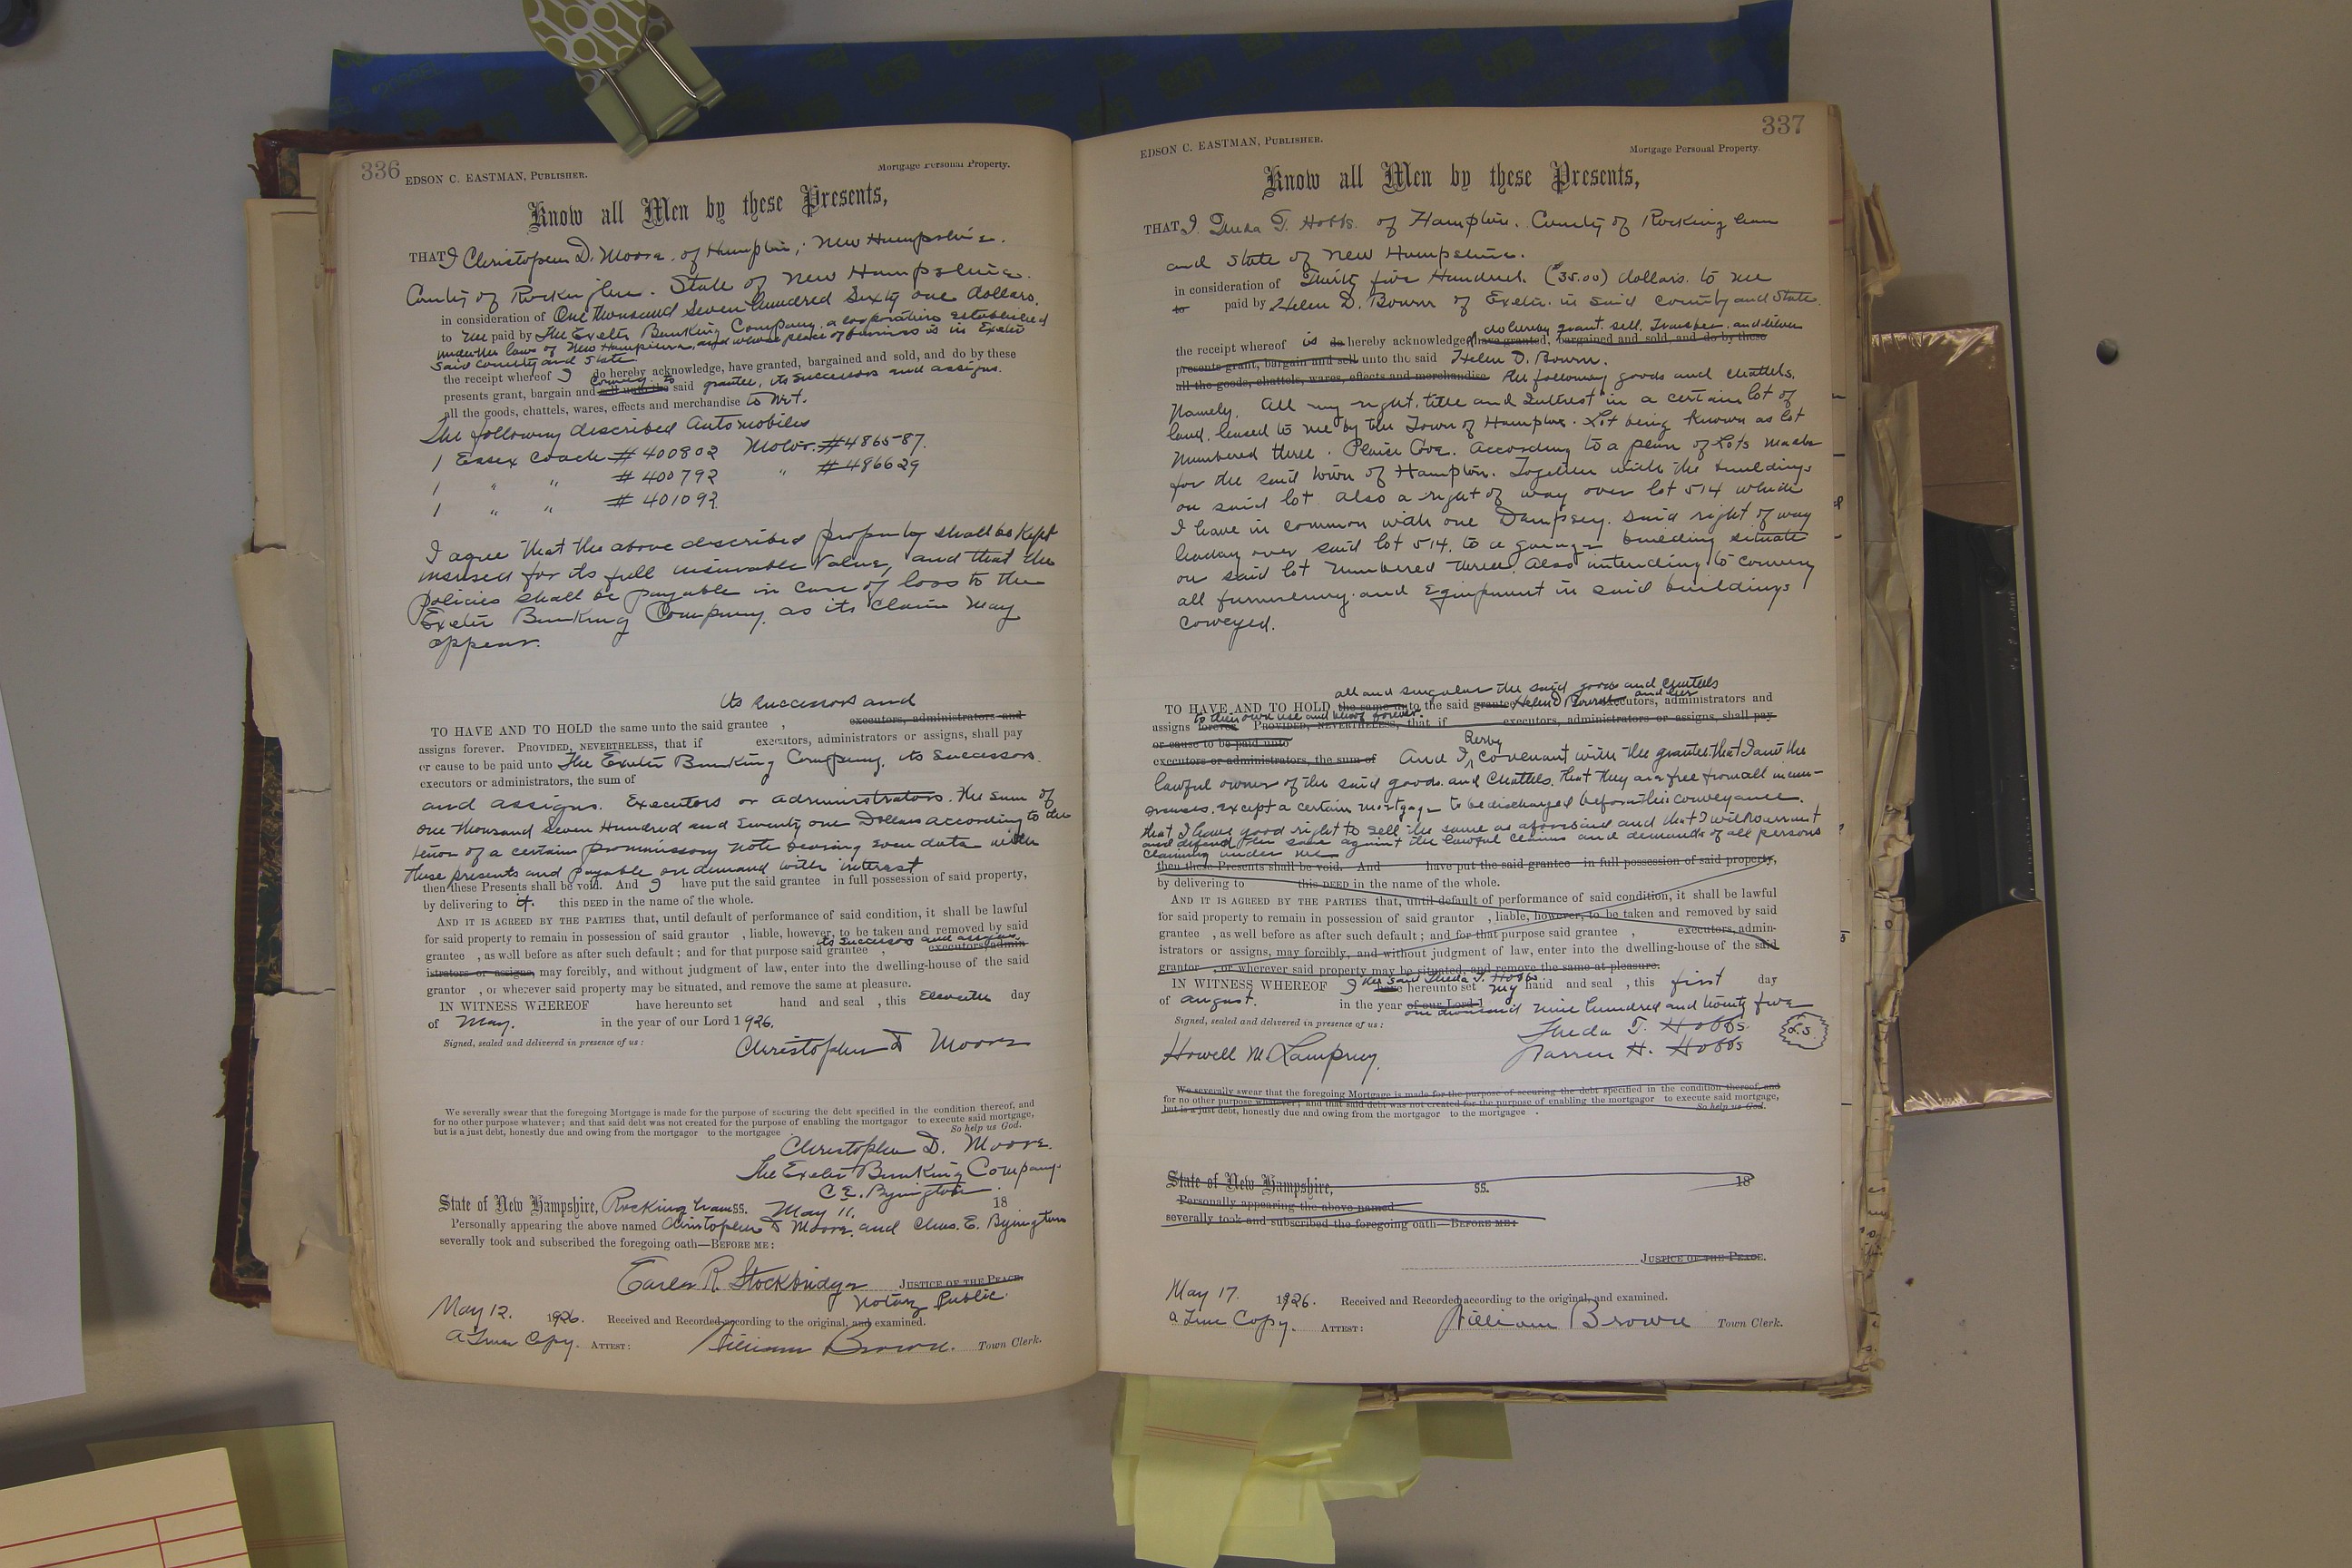 336
EDSON C. EASTMAN, PUBLISHER.
Mortgage Personal Property.
Know all Men by these Presents,
THAT I Christopher D. Moore, of Hampton, New Hampshire.
County of Rockingham. State of New Hampshire.
in consideration of One thousand Seven hundred Sixty one dollars.
to me paid by The Exeter Banking Company, a corporation established
under the laws of New Hampshire, and whose place of business is in Exeter
said county and State
the receipt whereof I do hereby acknowledge, have granted, bargained and sold, and do by these
presents grant, bargain and sell unto the convey to said grantee, its successors and assigns.
all the goods, chattels, wares, effects and merchandise to wit.
The following described Automobiles
1 Essex Coach # 400802 Motor. # 486587.
1 " " # 400792 " # 486629
1 " " # 401092
I agree that the above described property shall be kept
insured for its full insurable value, and that the
policies shall be payable in case of loss to the
Exeter Banking Company, as its claim may
appear.
its successors and
TO HAVE AND TO HOLD the same unto the said grantee , executors, administrators and
assigns forever. PROVIDED, NEVERTHELESS, that if executors, administrators or assigns, shall pay
or cause to be paid unto The Exeter Banking Company, its successors
executors or administrators, the sum of
and assigns. Executors or administrators. The sum of
one thousand seven Hundred and Seventy one Dollars according to the
tenor of a certain promissory note bearing even date with
these presents and payable on demand with interest
then these Presents shall be void. And I have put the said grantee in full possession of said property,
by delivering to it. this DEED in the name of the whole.
AND IT IS AGREED BY THE PARTIES that, until default of performance of said condition, it shall be lawful
for said property to remain in possession of said grantor , liable, however, to be taken and removed by said
its successors and assigns
grantee , as well before as after such default ; and for that purpose said grantee , executors, admin-
istrators or assigns, may forcibly, and without judgment of law, enter into the dwelling-house of the said
grantor , or wherever said property may be situated, and remove the same at pleasure.
IN WITNESS WHEREOF have hereunto set hand and seal , this Eleventh day
of May. in the year of our Lord 1926.
Signed, sealed and delivered in presence of us :
Christopher D Moore
We severally swear that the foregoing Mortgage is made for the purpose of securing the debt specified in the condition thereof, and
for no other purpose whatever ; and that said debt was not created for the purpose of enabling the mortgagor to execute said mortgage,
but is a just debt, honestly due and owing from the mortgagor to the mortgagee . So help us God.
Christopher D. Moore.
The Exeter Banking Company.
C. E. Byington.
State of New Hampshire, Rockingham ss. May 11. 18
Personally appearing the above named Christopher D Moore, and Chas. E. Byington
severally took and subscribed the foregoing oath—BEFORE ME :
R. Stockbridge JUSTICE OF THE PEACE.
Notary Public.
May 12. 1926. Received and Recorded according to the original, and examined.
A True Copy. ATTEST : William Brown. Town Clerk.
337
EDSON C. EASTMAN, PUBLISHER.
Mortgage Personal Property.
Know all Men by these Presents,
THAT I. Theda T. Hobbs of Hampton. County of Rockingham
and State of New Hampshire.
in consideration of Thirty five Hundred. ($35.00) dollars. to me
to paid by Helen D. Bourn of Exeter. in said county and State.
do hereby grant. sell. Transfer. and deliver
the receipt whereof is do hereby acknowledged have granted, bargained and sold, and do by these
presents grant, bargain and sell unto the said Helen D. Bourn.
all the goods, chattels, wares, effects and merchandise the following goods and chattels.
Namely. All my right, title and Interest in a certain lot of
land. leased to me by the Town of Hampton. Lot being known as lot
Numbered three. Plaise Cove. According to a plan of Lots made
for the said town of Hampton. Together with the buildings
on said lot. Also a right of way over lot 514 which
I have in common with one Dampsey. said right of way
leading over said lot 514. to a garage building situate
on said lot numbered three. Also intending to convey
all furnishing. and Equipment in said buildings
conveyed.
all and singular the said goods and chattels
TO HAVE AND TO HOLD the same unto the said grantee Helen D Bourn and her executors, administrators and
to their own use and behoof forever.
assigns forever PROVIDED, NEVERTHELESS, that if executors, administrators or assigns, shall pay
or cause to be paid unto
executors or administrators, the sum of And I, Covenant with the grantee. that I am the
lawful owner of the said goods. and chattels. that they are free from all incum-
brances. except a certain mortgage to be discharged before this conveyance.
that I have good right to sell the same as aforesaid and that I will warrant
and defend the same against the lawful claims and demands of all persons
claiming under me
then these Presents shall be void. And have put the said grantee in full possession of said property,
by delivering to this DEED in the name of the whole.
AND IT IS AGREED BY THE PARTIES that, until default of performance of said condition, it shall be lawful
for said property to remain in possession of said grantor , liable, however, to be taken and removed by said
grantee , as well before as after such default ; and for that purpose said grantee , executors, admin-
istrators or assigns, may forcibly, and without judgment of law, enter into the dwelling-house of the said
grantor , or wherever said property may be situated, and remove the same at pleasure.
IN WITNESS WHEREOF I the said Theda T. Hobbs have hereunto set my hand and seal , this first day
of August. in the year of our Lord 1 one thousand nine hundred and twenty five
Signed, sealed and delivered in presence of us :
Theda T. Hobbs.
L.S.
Howell M Lamprey.
Warren H. Hobbs
We severally swear that the foregoing Mortgage is made for the purpose of securing the debt specified in the condition thereof, and
for no other purpose whatever ; and that said debt was not created for the purpose of enabling the mortgagor to execute said mortgage,
but is a just debt, honestly due and owing from the mortgagor to the mortgagee . So help us God.
State of New Hampshire, ss. 18
Personally appearing the above named
severally took and subscribed the foregoing oath—BEFORE ME :
JUSTICE OF THE PEACE.
May 17. 1926. Received and Recorded according to the original, and examined.
A True Copy. ATTEST : William Brown Town Clerk.